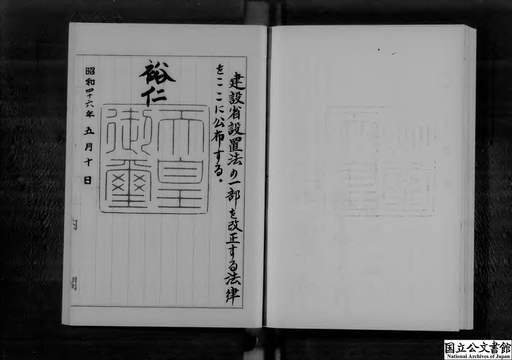 建設省設置法の一部を改正する法律
をここに公布する。
裕仁
天皇
御璽
昭和四十六年五月十日
内閣
国立公文書館
National Archives of Japan